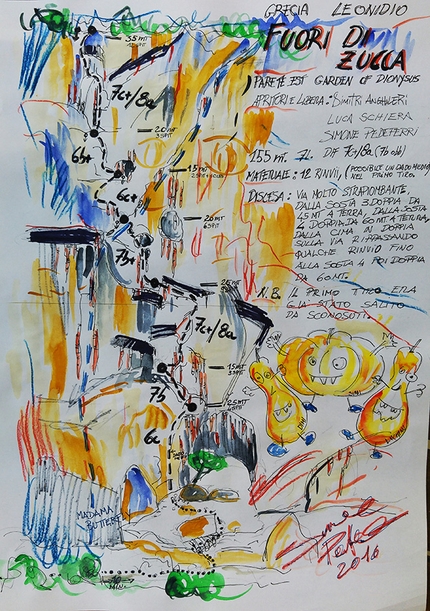 GRECIA LEONIDIO
FUORI DI
ZUCCA
PARETE EST GARDEN OF DIONYSUS
APRITORI E LIBERA: DIMITRI ANGHILERI
LUCA SCHIERA
SIMONE PEDEFERRI
155 mt. 7L. DIFF 7c+/8a (7b obl)
MATERIALE: 12 RINVII, (POSSIBILE UN DADO MEDIO
NEL PRIMO TIRO)
DISCESA: VIA MOLTO STRAPIOMBANTE,
DALLA SOSTA 3 DOPPIA DA
45 MT A TERRA, DALLA SOSTA
4 DOPPIA DA 60 MT A TERRA,
DALLA CIMA IN DOPPIA
SULLA VIA RIPASSANDO
QUALCHE RINVIO FINO
ALLA SOSTA 4 POI DOPPIA
DA 60 MT.
N.B. IL PRIMO TIRO ERA
GIÀ STATO SALITO
DA SCONOSCIUTI.
35 MT
7c+/8a
20 MT
6b+
15 MT
6c+
20 MT
7b+
25 MT
7c+/8a
15 MT
7b
25 MT
6a
MADAMA
BUTTERFLY
2016